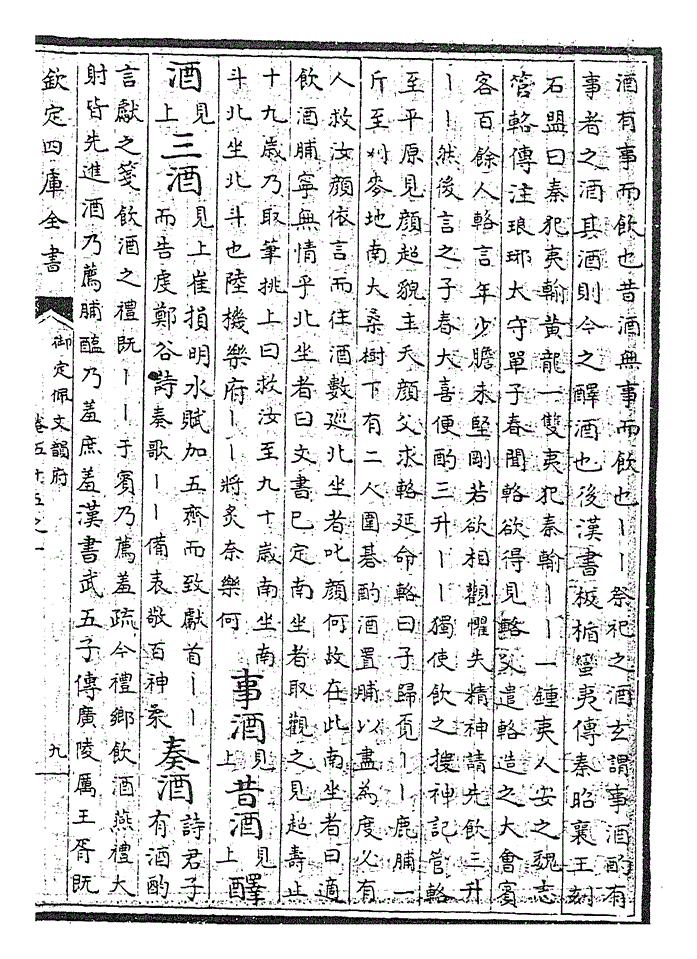 酒有事而飲也昔酒無事而飲也丨丨祭祀之酒玄謂事酒酌有
事者之酒其酒則今之醳酒也後漢書板楯蠻夷傳秦昭襄王刻
石盟曰秦犯夷輸黃龍一雙夷犯秦輸丨丨一鍾夷人安之魏志
管輅傳注琅琊太守單子春聞輅欲得見輅父遣輅造之大會賓
客百餘人輅言年少膽未堅剛若欲相觀懼失精神請先飲三升
丨丨然後言之子春大喜便酌三升丨丨獨使飲之搜神記管輅
至平原見顏超貌主夭顏父求輅延命輅曰子歸覔丨丨鹿脯一
斤至刈麥地南大桑樹下有二人圍碁酌酒置脯以盡為度必有
人救汝顏依言而往酒數巡北坐者叱顏何故在此南坐者曰適
飲酒脯寧無情乎北坐者曰文書已定南坐者取觀之見超壽止
十九歲乃取筆挑上曰救汝至九十歲南坐南
斗北坐北斗也陸機樂府丨丨將炙奈樂何
事酒見上昔酒見上醳
酒見上三酒見上崔損明水賦加五齊而致獻首丨丨
而告虔鄭谷詩奏歌丨丨備表敬百神柔
奏酒詩君子
有酒酌
言獻之箋飲酒之禮既丨丨于賓乃薦羞疏今禮鄉飲酒燕禮大
射皆先進酒乃薦脯醢乃羞庶羞漢書武五子傳廣陵厲王胥既
欽定四庫全書
御定佩文韻府
卷五十五之一
九